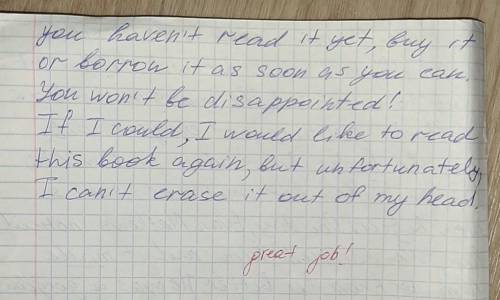 you haven't read it yet, buy it
or borrow it as soon as you can.
You won't be disappointed!
If I could, I would like to read
this book again, but unfortunately,
I can't erase it out of my head.
great job!